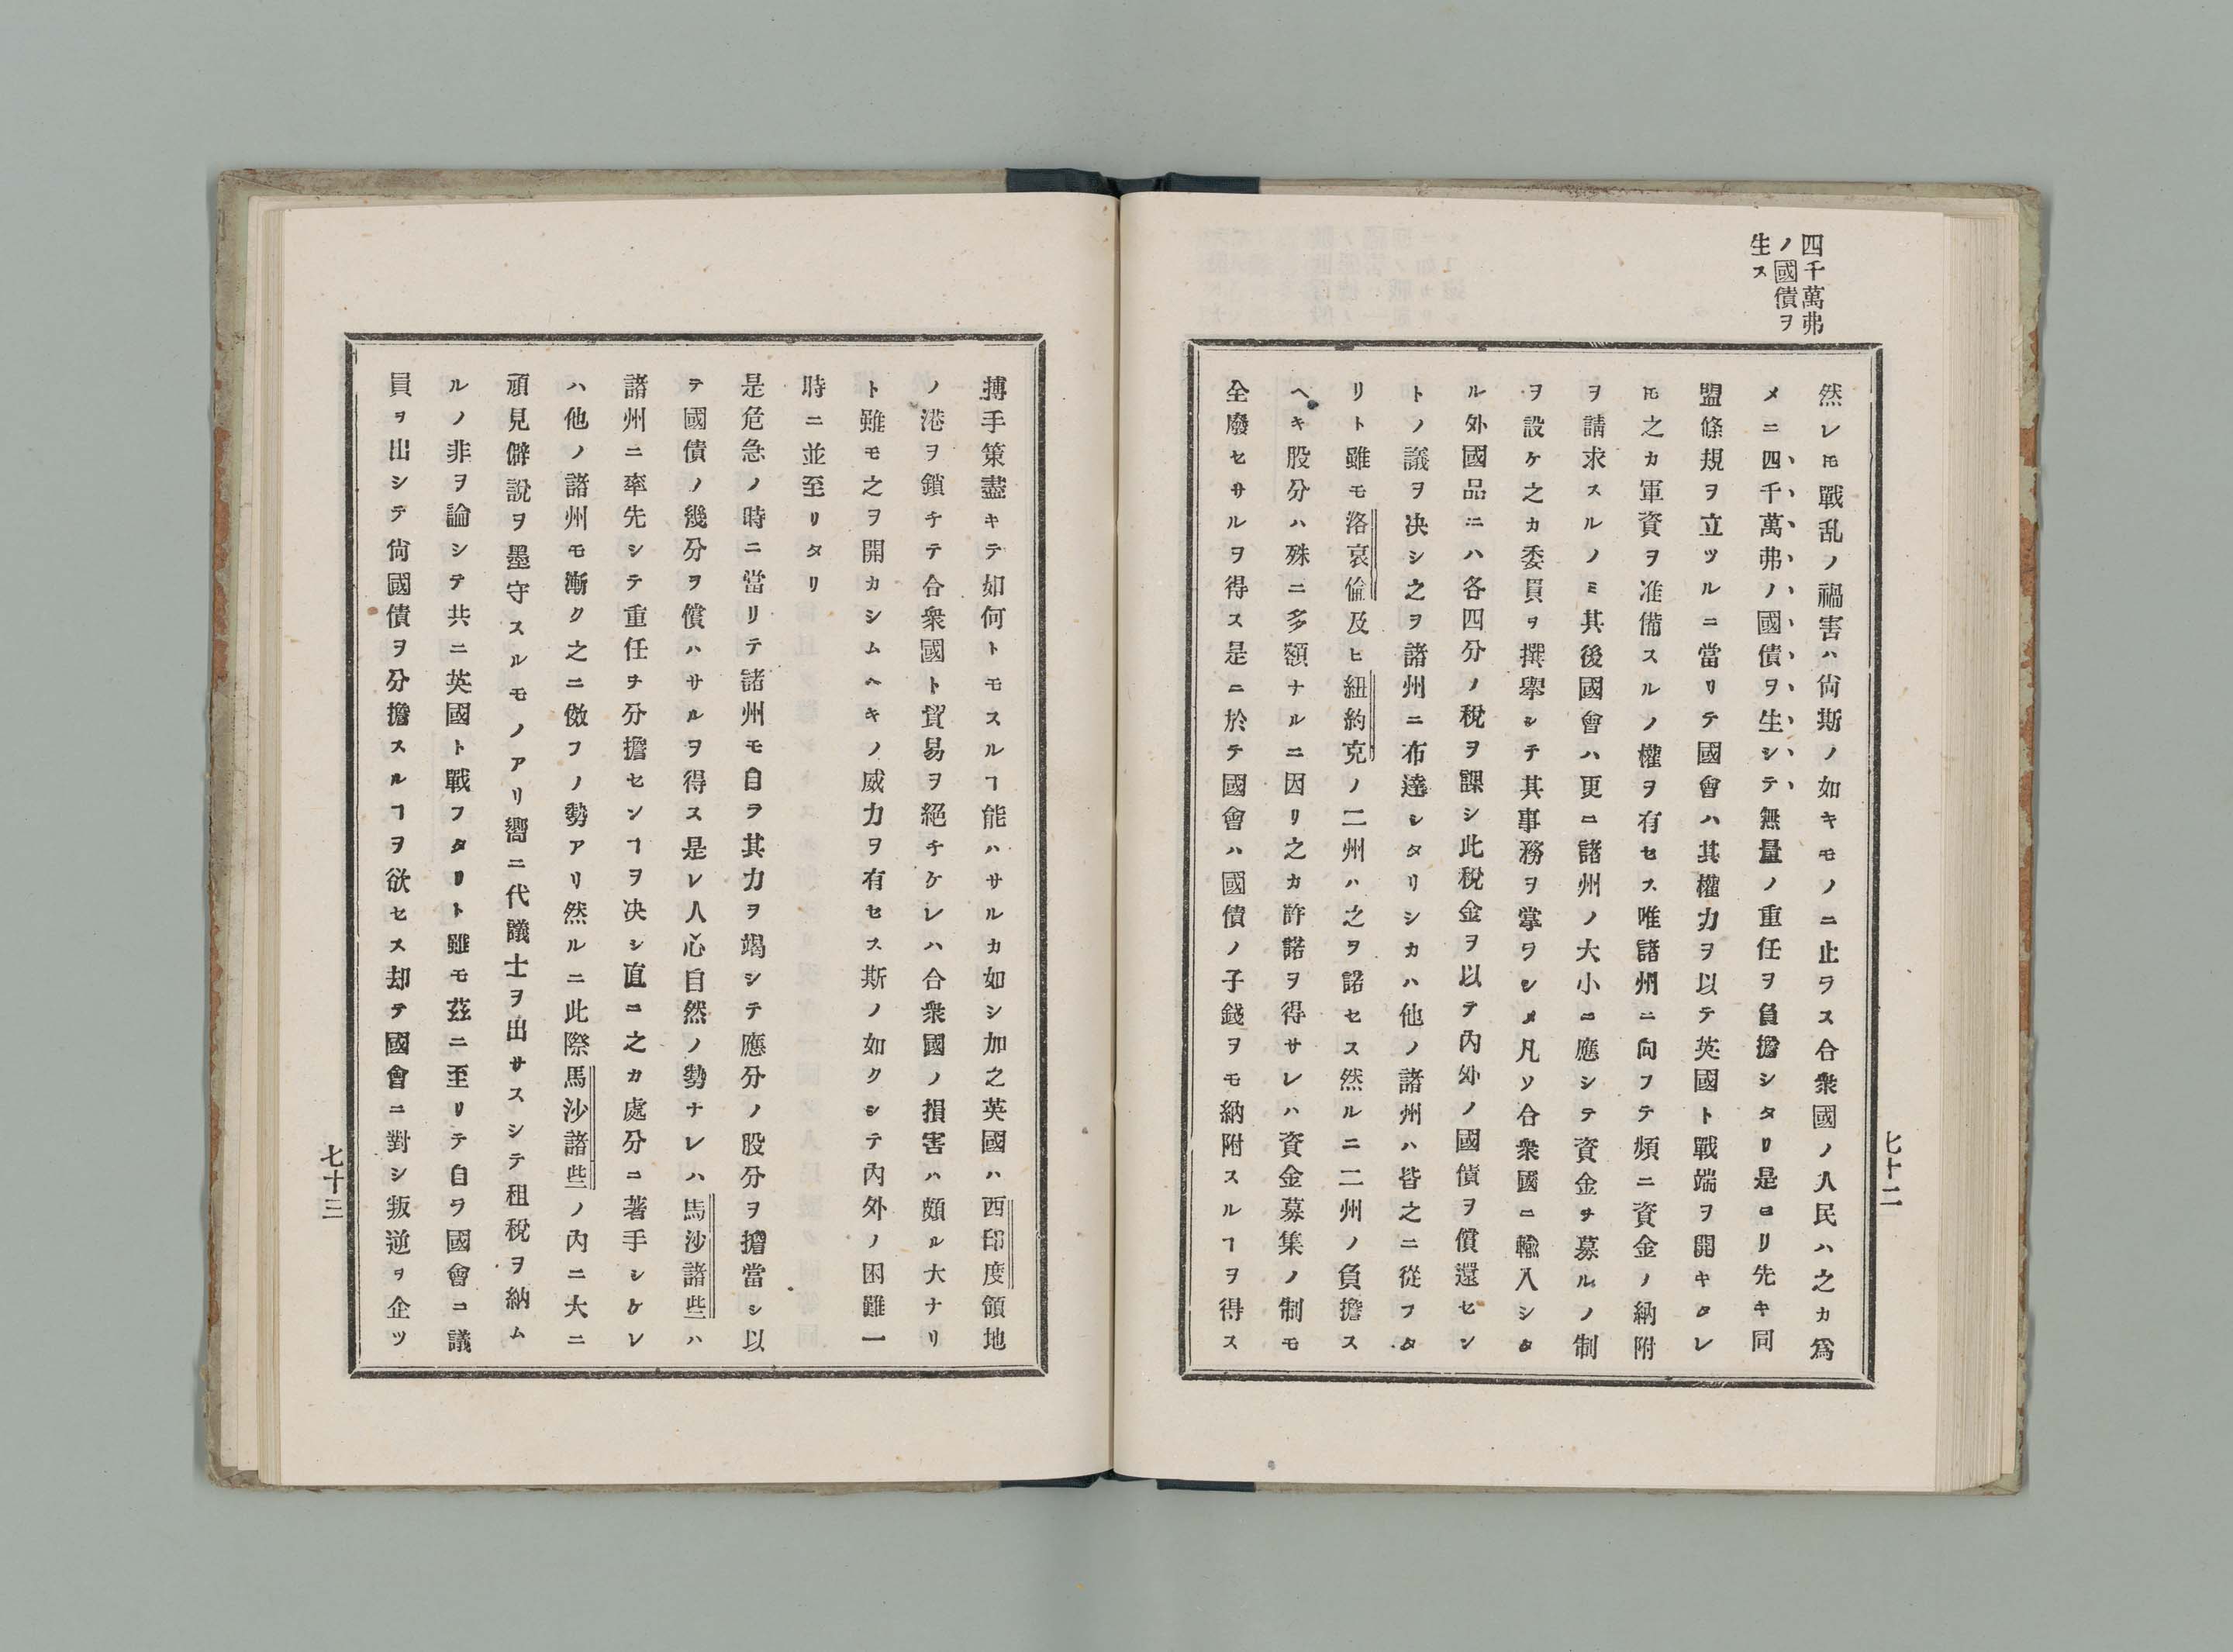 四千萬弗
ノ國債ヲ
生ス
然レ𪜈戰乱ノ禍害ハ尙斯ノ如キモノニ止ラス合衆國ノ人民ハ之カ爲
メニ四千萬弗ノ國債ヲ生シテ無量ノ重任ヲ負擔シタリ是ヨリ先キ同
盟條規ヲ立ツルニ當リテ國會ハ其權力ヲ以テ英國ト戰端ヲ開キタレ
𪜈之カ軍資ヲ准備スルノ權ヲ有セス唯諸州ニ向フテ頻ニ資金ノ納附
ヲ請求スルノミ其後國會ハ更ニ諸州ノ大小ニ應シテ資金ヲ募ルノ制
ヲ設ケ之カ委員ヲ撰擧シテ其事務ヲ掌ラシメ凡ソ合衆國ニ輸入シタ
ル外國品ニハ各四分ノ稅ヲ課シ此稅金ヲ以テ內外ノ國債ヲ償還セン
トノ議ヲ决シ之ヲ諸州ニ布達シタリシカハ他ノ諸州ハ皆之ニ從フタ
リト雖モ洛哀倫及ヒ紐約克ノ二州ハ之ヲ諾セス然ルニ二州ノ負擔ス
ヘキ股分ハ殊ニ多額ナルニ因リ之カ許諾ヲ得サレハ資金募集ノ制モ
全廢セサルヲ得ス是ニ於テ國會ハ國債ノ子錢ヲモ納附スルヿヲ得ス
七十二
搏手策盡キテ如何トモスルヿ能ハサルカ如シ加之英國ハ西印度領地
ノ港ヲ鎖チテ合衆國ト貿易ヲ絕チケレハ合衆國ノ損害ハ頗ル大ナリ
ト雖モ之ヲ開カシムヘキノ威力ヲ有セス斯ノ如クシテ內外ノ困難一
時ニ並至リタリ
是危急ノ時ニ當リテ諸州モ自ラ其力ヲ竭シテ應分ノ股分ヲ擔當シ以
テ國債ノ幾分ヲ償ハサルヲ得ス是レ人心自然ノ勢ナレハ馬沙諸些ハ
諸州ニ率先シテ重任ヲ分擔センヿヲ决シ直ニ之カ處分ニ著手シケレ
ハ他ノ諸州モ漸ク之ニ傚フノ勢アリ然ルニ此際馬沙諸些ノ內ニ大ニ
頑見僻說ヲ墨守スルモノアリ嚮ニ代議士ヲ出サスシテ租稅ヲ納ム
ルノ非ヲ論シテ共ニ英國ト戰フタリト雖モ茲ニ至リテ自ラ國會ニ議
員ヲ出シテ尙國債ヲ分擔スルヿヲ欲セス却テ國會ニ對シ叛逆ヲ企ツ
七十三